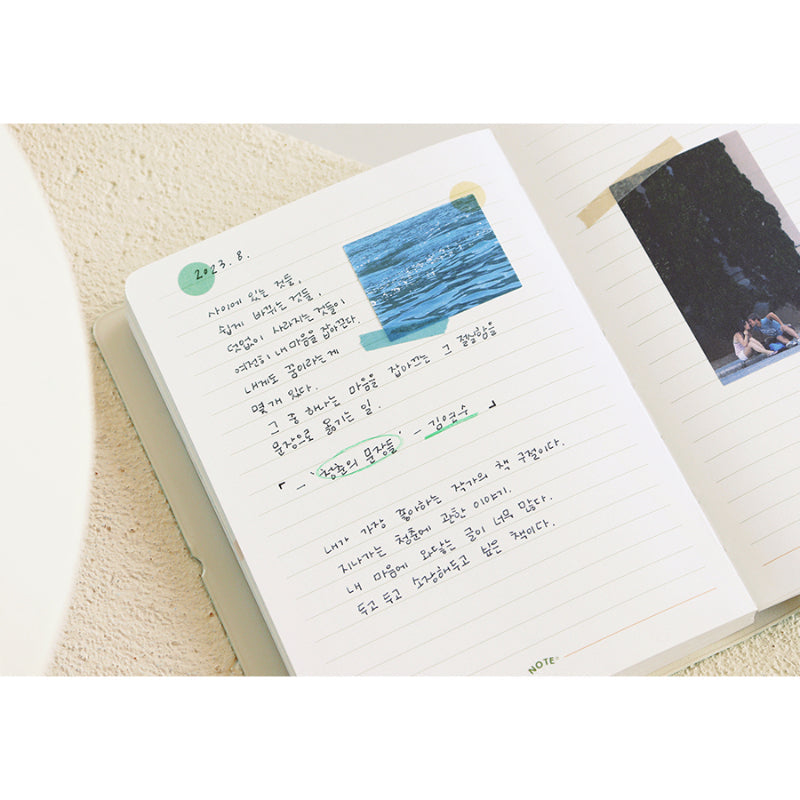 2023. 8.
사이에 있는 것들,
쉽게 바뀌는 것들,
덧없이 사라지는 것들이
여전히 내 마음을 잡아끈다.
내게도 꿈이라는게
몇 개 있다.
그 중 하나는 마음을 잡아끄는 그 절실함을
문장으로 옮기는 일.
「 _ '청춘의 문장들' - 김연수 」
내가 가장 좋아하는 작가의 책 구절이다.
지나가는 청춘에 관한 이야기.
내 마음에 와닿는 글이 너무 많다.
두고 두고 소장해두고 싶은 책이다.
NOTE-